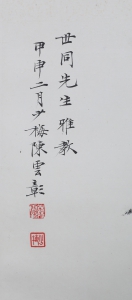 世同先生雅教
甲申二月少梅陳雲彰